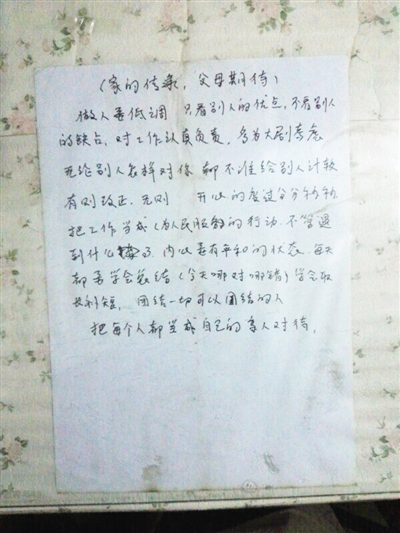 （家的传承，父母期待）
做人要低调 只看别人的优点，不看别人
的缺点，对工作认真负责，多为大局考虑
无论别人怎样对你 都不准给别人计较
有则改正 无则 开心的度过分分秒秒
把工作当成（为人民服务）的行动 不管遇
到什么 内心要有平和的状态 每天
都要学会总结（今天哪对哪错）学会取
长补短，团结一切可以团结的人
把每个人都当成自己的家人对待，